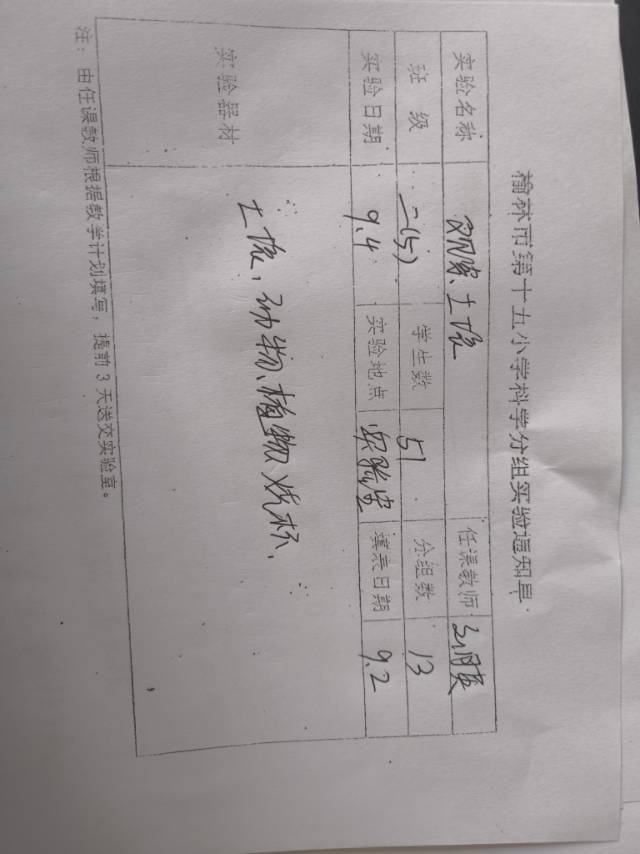 榆林市第十五小学科学分组实验通知单
实验名称 观察土壤 任课教师
班 级 二(5) 学生数 51 分组数 13
实验日期 9.4 实验地点 实验室 填表日期 9.2
实验器材 土壤、动物、植物、烧杯、
注：由任课教师根据教学计划填写，提前3天送交实验室。